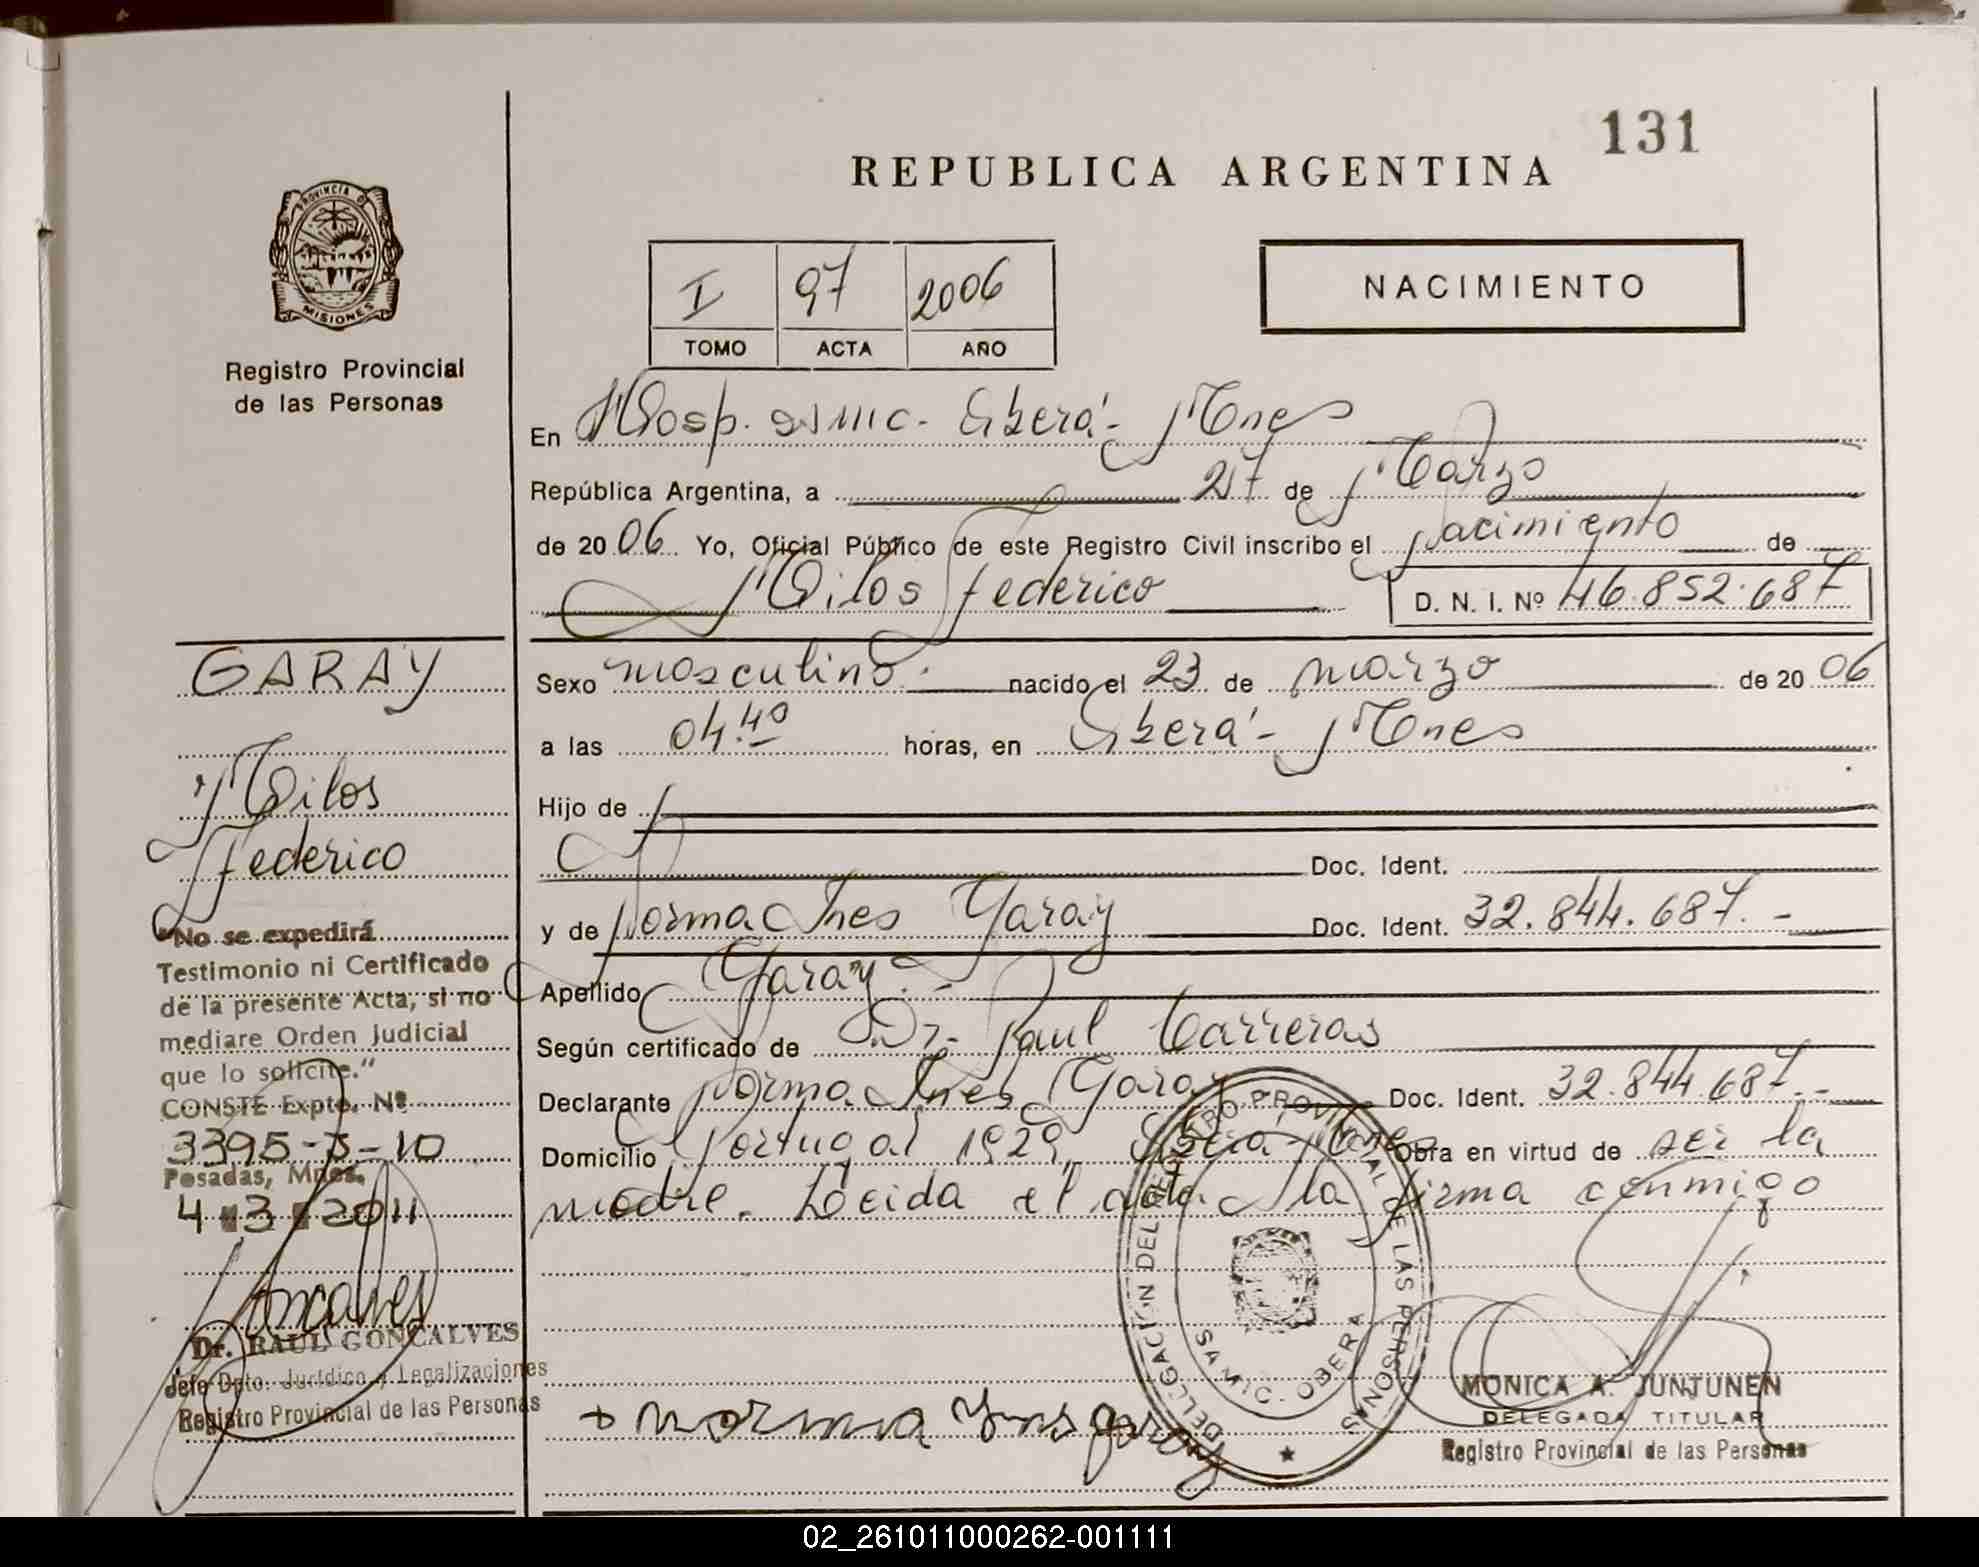 131
REPUBLICA ARGENTINA
PROVINCIA DE
MISIONES
Registro Provincial
de las Personas
I 97 2006
TOMO ACTA AÑO
NACIMIENTO
En Hosp. SAMIC - Oberá - Mnes
República Argentina, a 27 de Marzo
de 2006 Yo, Oficial Público de este Registro Civil inscribo el Nacimiento de
Milos Federico D. N. I. Nº 46.852.687
GARAY
Milos
Federico
"No se expedirá
Testimonio ni Certificado
de la presente Acta, si no
mediare Orden Judicial
que lo solicite."
CONSTE Expte. Nº
3395- -10
Posadas, Mnes.
4 3 2011
Dr. RAUL GONCALVES
Jefe Dpto. Jurídico y Legalizaciones
Registro Provincial de las Personas
Sexo masculino. nacido el 23 de marzo de 2006
a las 04.40 horas, en Oberá - Mnes
Hijo de
Doc. Ident.
y de Norma Ines Garay Doc. Ident. 32.844.687.-
Apellido Garay.-
Según certificado de Dr. Raul Carreras
Declarante Norma Ines Garay Doc. Ident. 32.844.687.-
Domicilio Portugal 1929, Oberá, Mnes Obra en virtud de ser la
madre. Leida el acta la firma conmigo
DELEGACION DEL REGISTRO PROVINCIAL DE LAS PERSONAS
SAMIC. OBERA
+ norma Ines garay
MONICA A. JUNTUNEN
DELEGADA TITULAR
Registro Provincial de las Personas
02_261011000262-001111